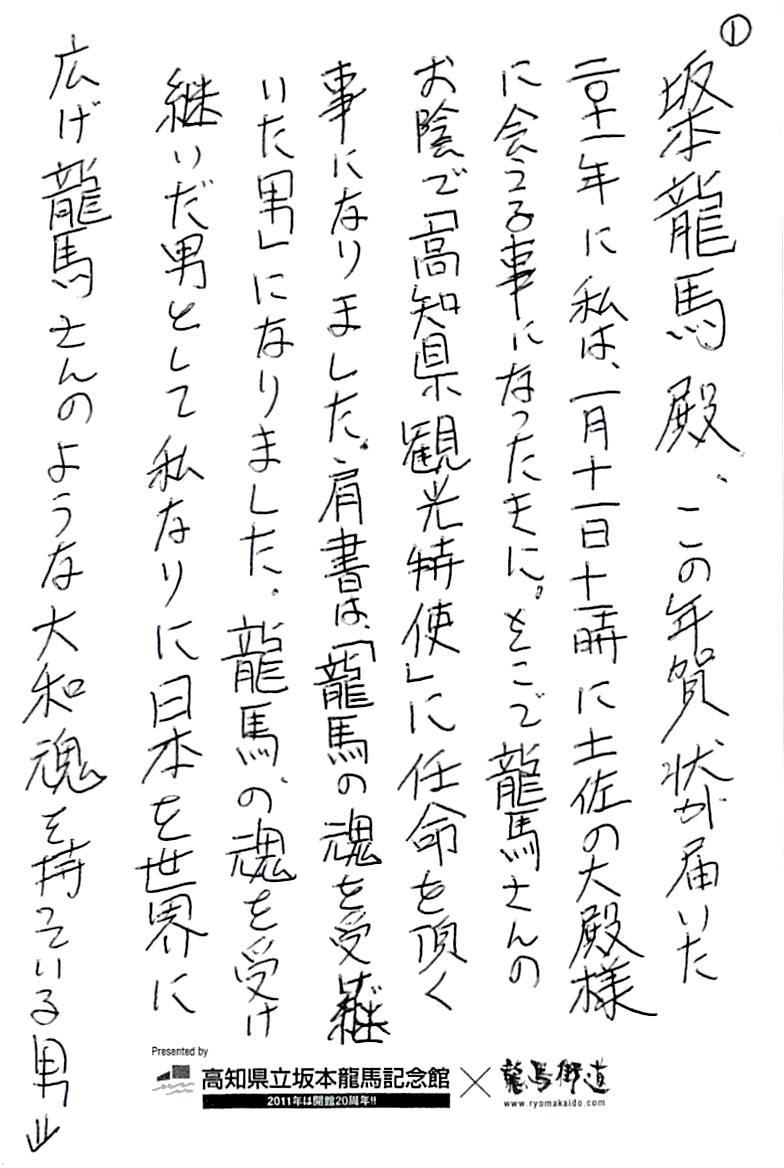 ①
坂本龍馬殿、この年賀状が届いた
二〇十一年に私は、一月十一日十一時に土佐の大殿様
に会うる事になったきに。そこで龍馬さんの
お陰で「高知県観光特使」に任命を頂く
事になりました。肩書は、「龍馬の魂を受け継
いた男」になりました。龍馬、の魂を受け
継いだ男として私なりに日本を世界に
広げ龍馬さんのような大和魂を持っている男⇓
Presented by
高知県立坂本龍馬記念館
2011年は開館20周年!!
×
龍馬街道
www.ryomakaido.com